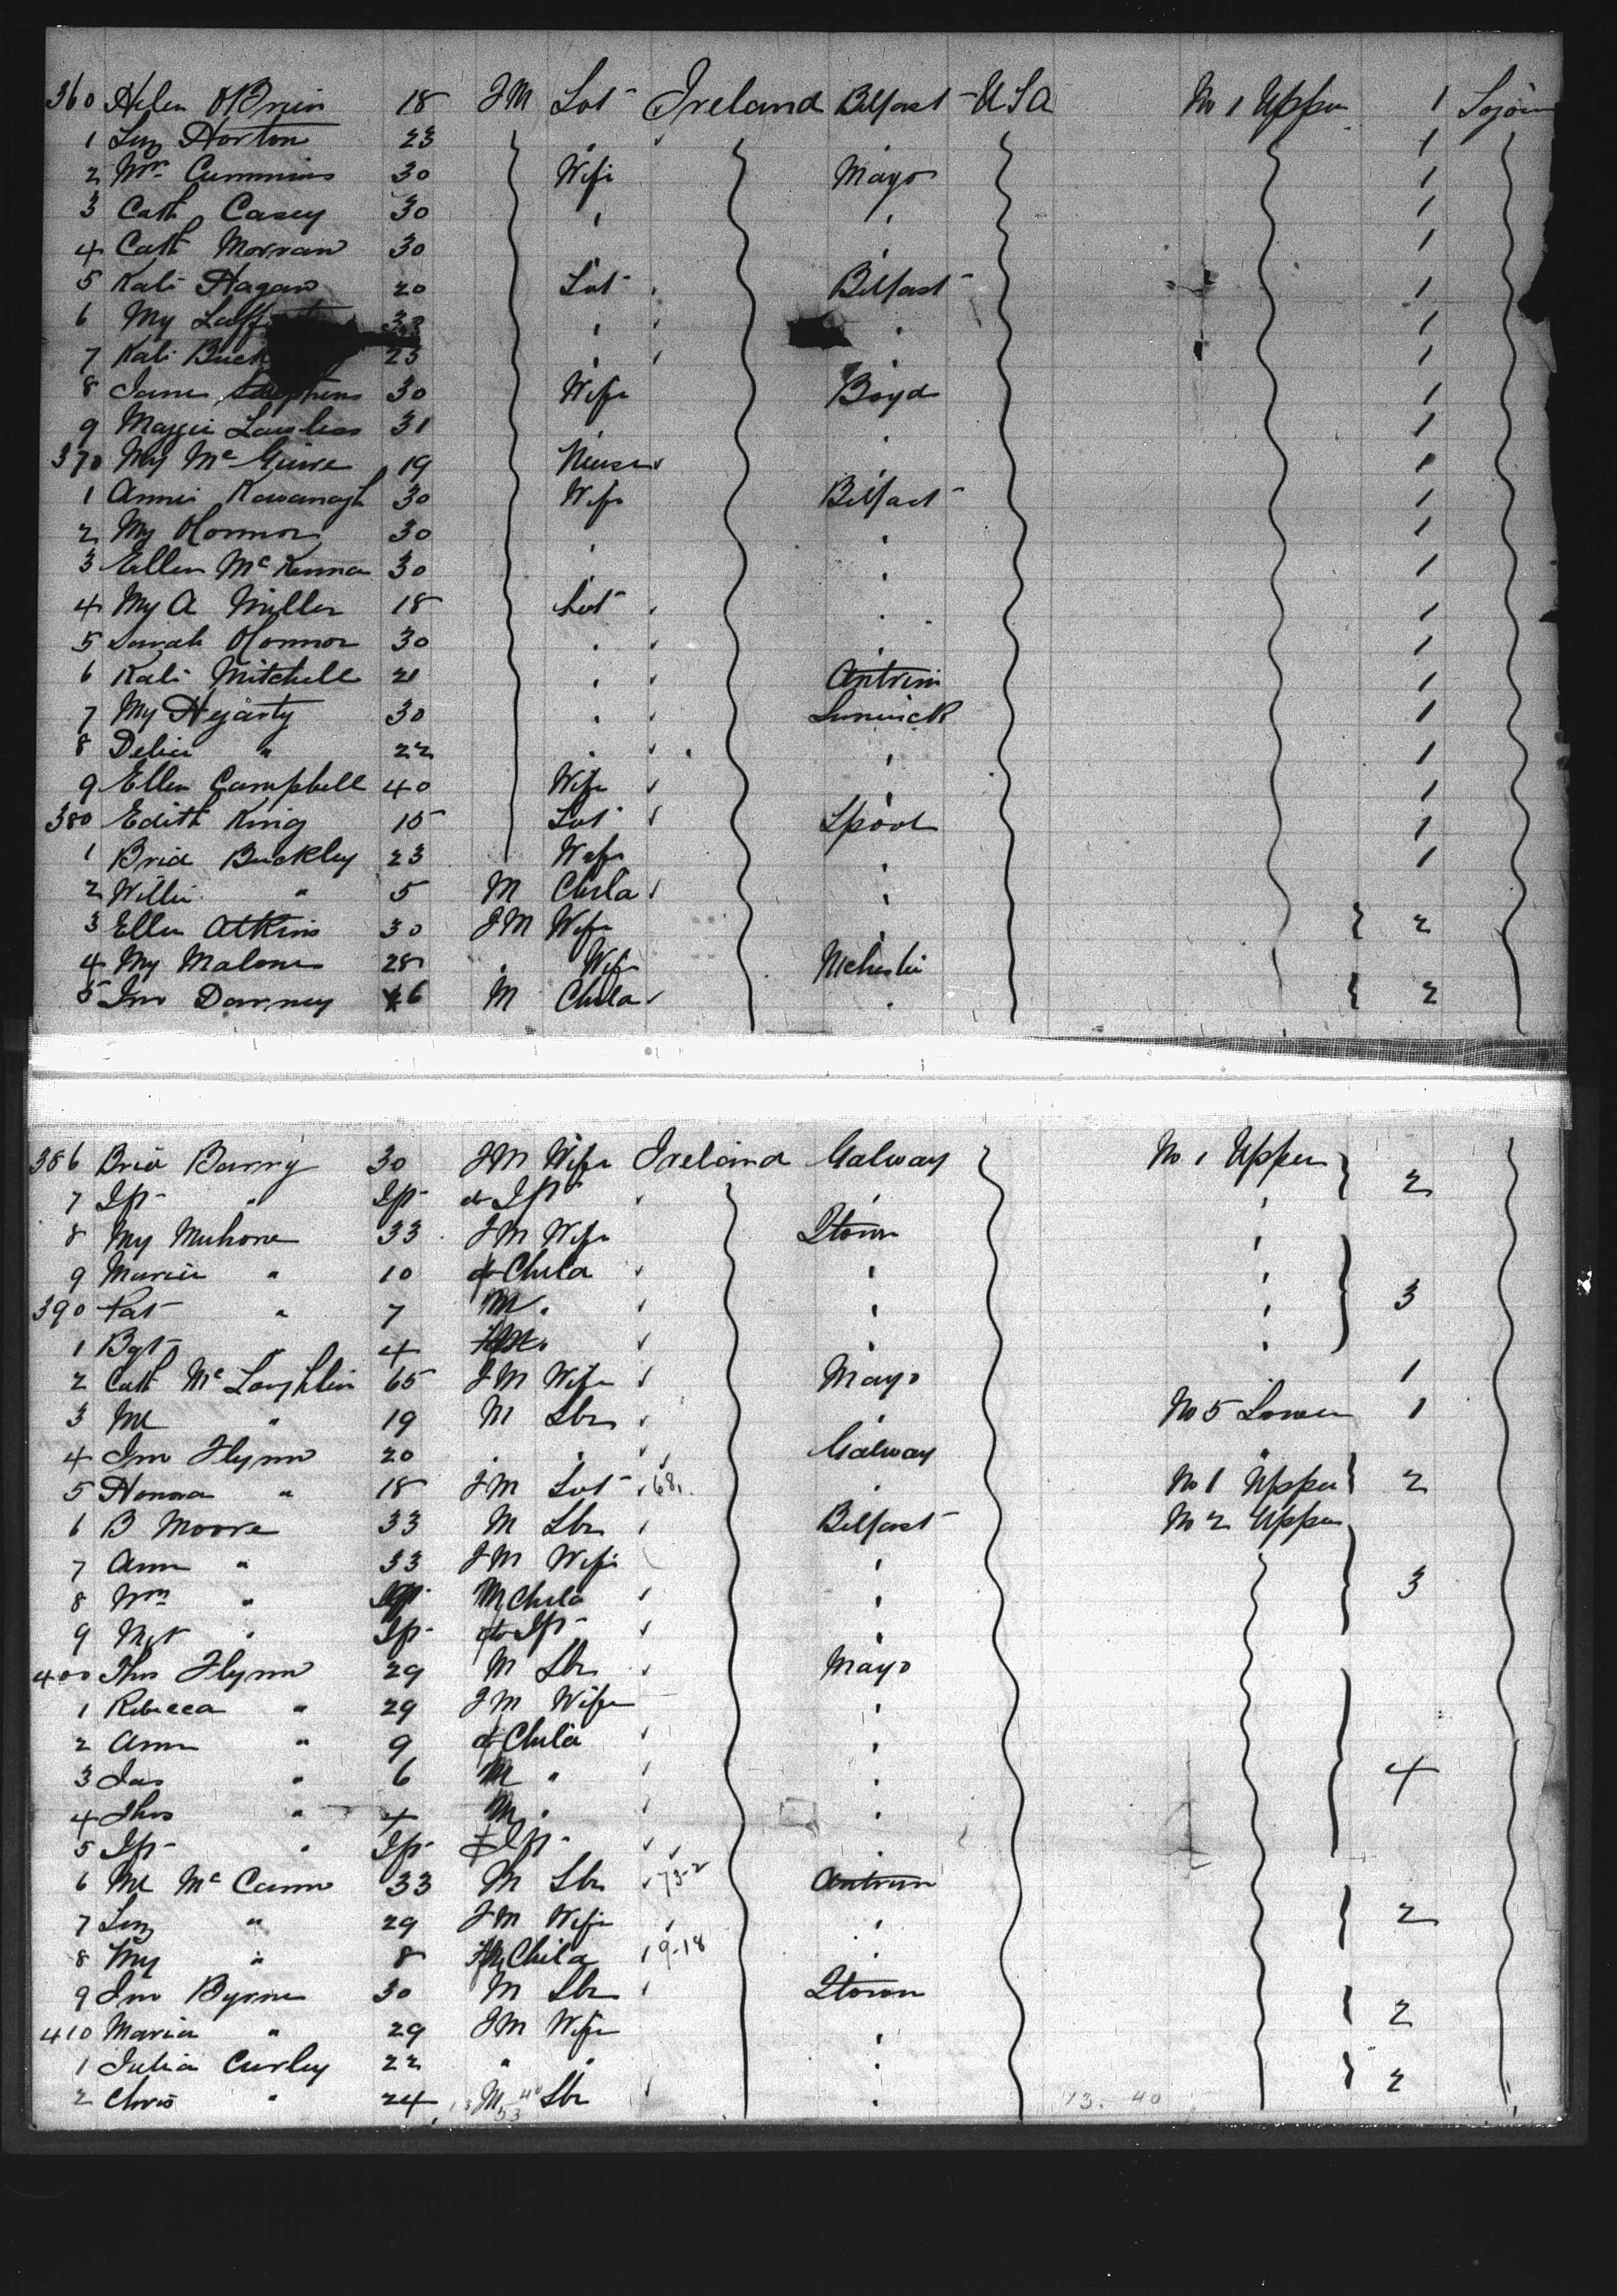 360 Helen OBrien 18 FM Sot Ireland Belfast USA No 1 Upper 1 Sojour
1 Liz Horton 23 " " " 1
2 Mrs Cummins 30 Wife Mayo 1
3 Cath Casey 30 " " 1
4 Cath Morran 30 " 1
5 Kati Hagan 20 Sot " Belfast 1
6 My Laff " " " 1
7 Kati Buck 25 " " " 1
8 Jane 30 Wife Boyd 1
9 Maggie Lawless 31 " " 1
370 My Mc Guire 19 Nurse " 1
1 Annie Kavanagh 30 Wife Belfast 1
2 My OConnor 30 " " 1
3 Ellen Mc Kenna 30 " " 1
4 My A Miller 18 Sot " " 1
5 Sarah OConnor 30 " " " 1
6 Kati Mitchell 21 " " Antrim 1
7 My Hegarty 30 " " Limrick 1
8 Delia " 22 " " " 1
9 Ellen Campbell 40 Wife " " 1
380 Edith King 15 Sot " Lpool 1
1 Brid Buckley 23 Wife " 1
2 Willie " 5 M Child " "
3 Ellen Atkins 30 FM Wife " 2
4 My Malone 28 " Wife Mchester
5 Jno Darney 6 M Child " " 2
386 Brid Barry 30 FM Wife Ireland Galway No 1 Upper 2
7 Ift " Ift do Ift " " "
8 My Muhone 33 FM Wife Qtown "
9 Maria " 10 do Child " " "
390 Pat " 7 M " " " " 3
1 Bgt " 4 " " " "
2 Cath Mc Loughlin 65 FM Wife " Mayo 1
3 Ml " 19 M Lbr " " No 5 Lower 1
4 Jno Flynn 20 " " " Galway "
5 Honora " 18 FM Sot " 68 " No 1 Upper 2
6 B Moore 33 M Lbr " Belfast No 2 Upper
7 Ann " 33 FM Wife "
8 Wm " M Child " " 3
9 Mgt " Ift do Ift " "
400 Thos Flynn 29 M Lbr " Mayo
1 Rebecca " 29 FM Wife "
2 Ann " 9 Child " "
3 Jas " 6 M " " " 4
4 Thos " 4 M " " "
5 Ift " Ift Ift " "
6 Ml Mc Cann 33 M Lbr " 73-2 Antrim
7 Liz " 29 FM Wife " " 2
8 My " 8 FM Child " 9-18 "
9 Jno Byrne 30 M Lbr " Qtown
410 Maria " 29 FM Wife " 2
1 Julia Curley 22 " " "
2 Chris " 24 M Lbr " " 2